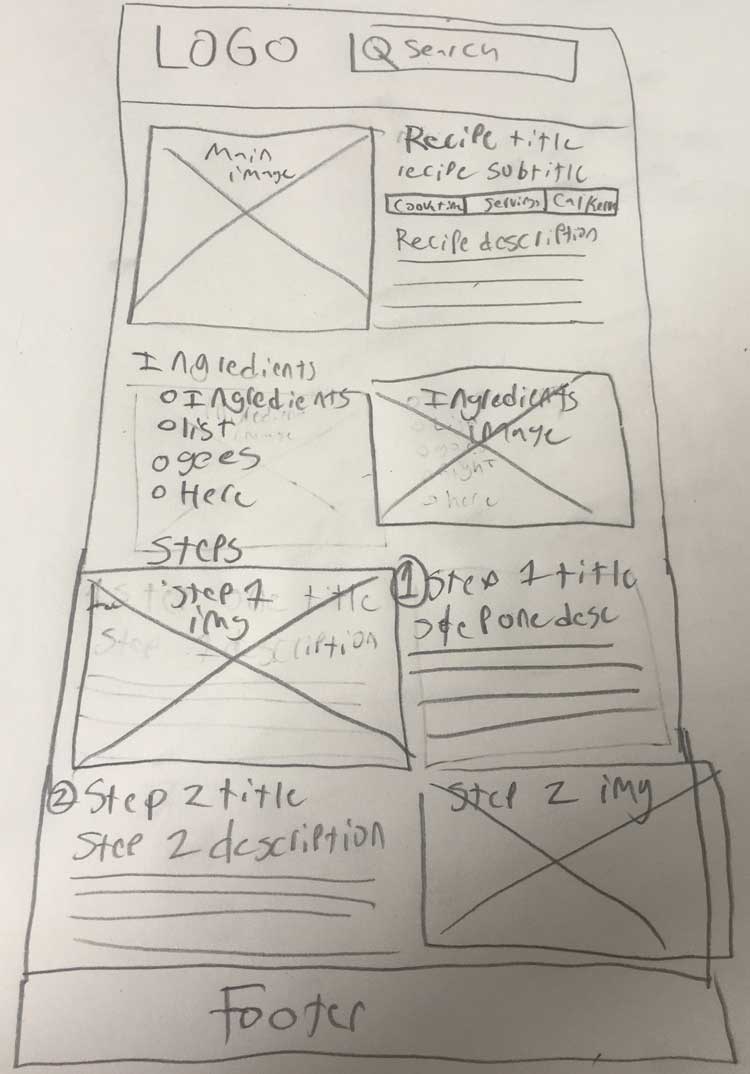 LOGO
Search
Main
image
Recipe title
recipe subtitle
Servings
Recipe description
Ingredients
Ingredients
list
goes
Here
Ingredients
image
here
Steps
Step 1
img
title
Step description
1 Step 1 title
step one desc
2 Step 2 title
Step 2 description
Step 2 img
Footer